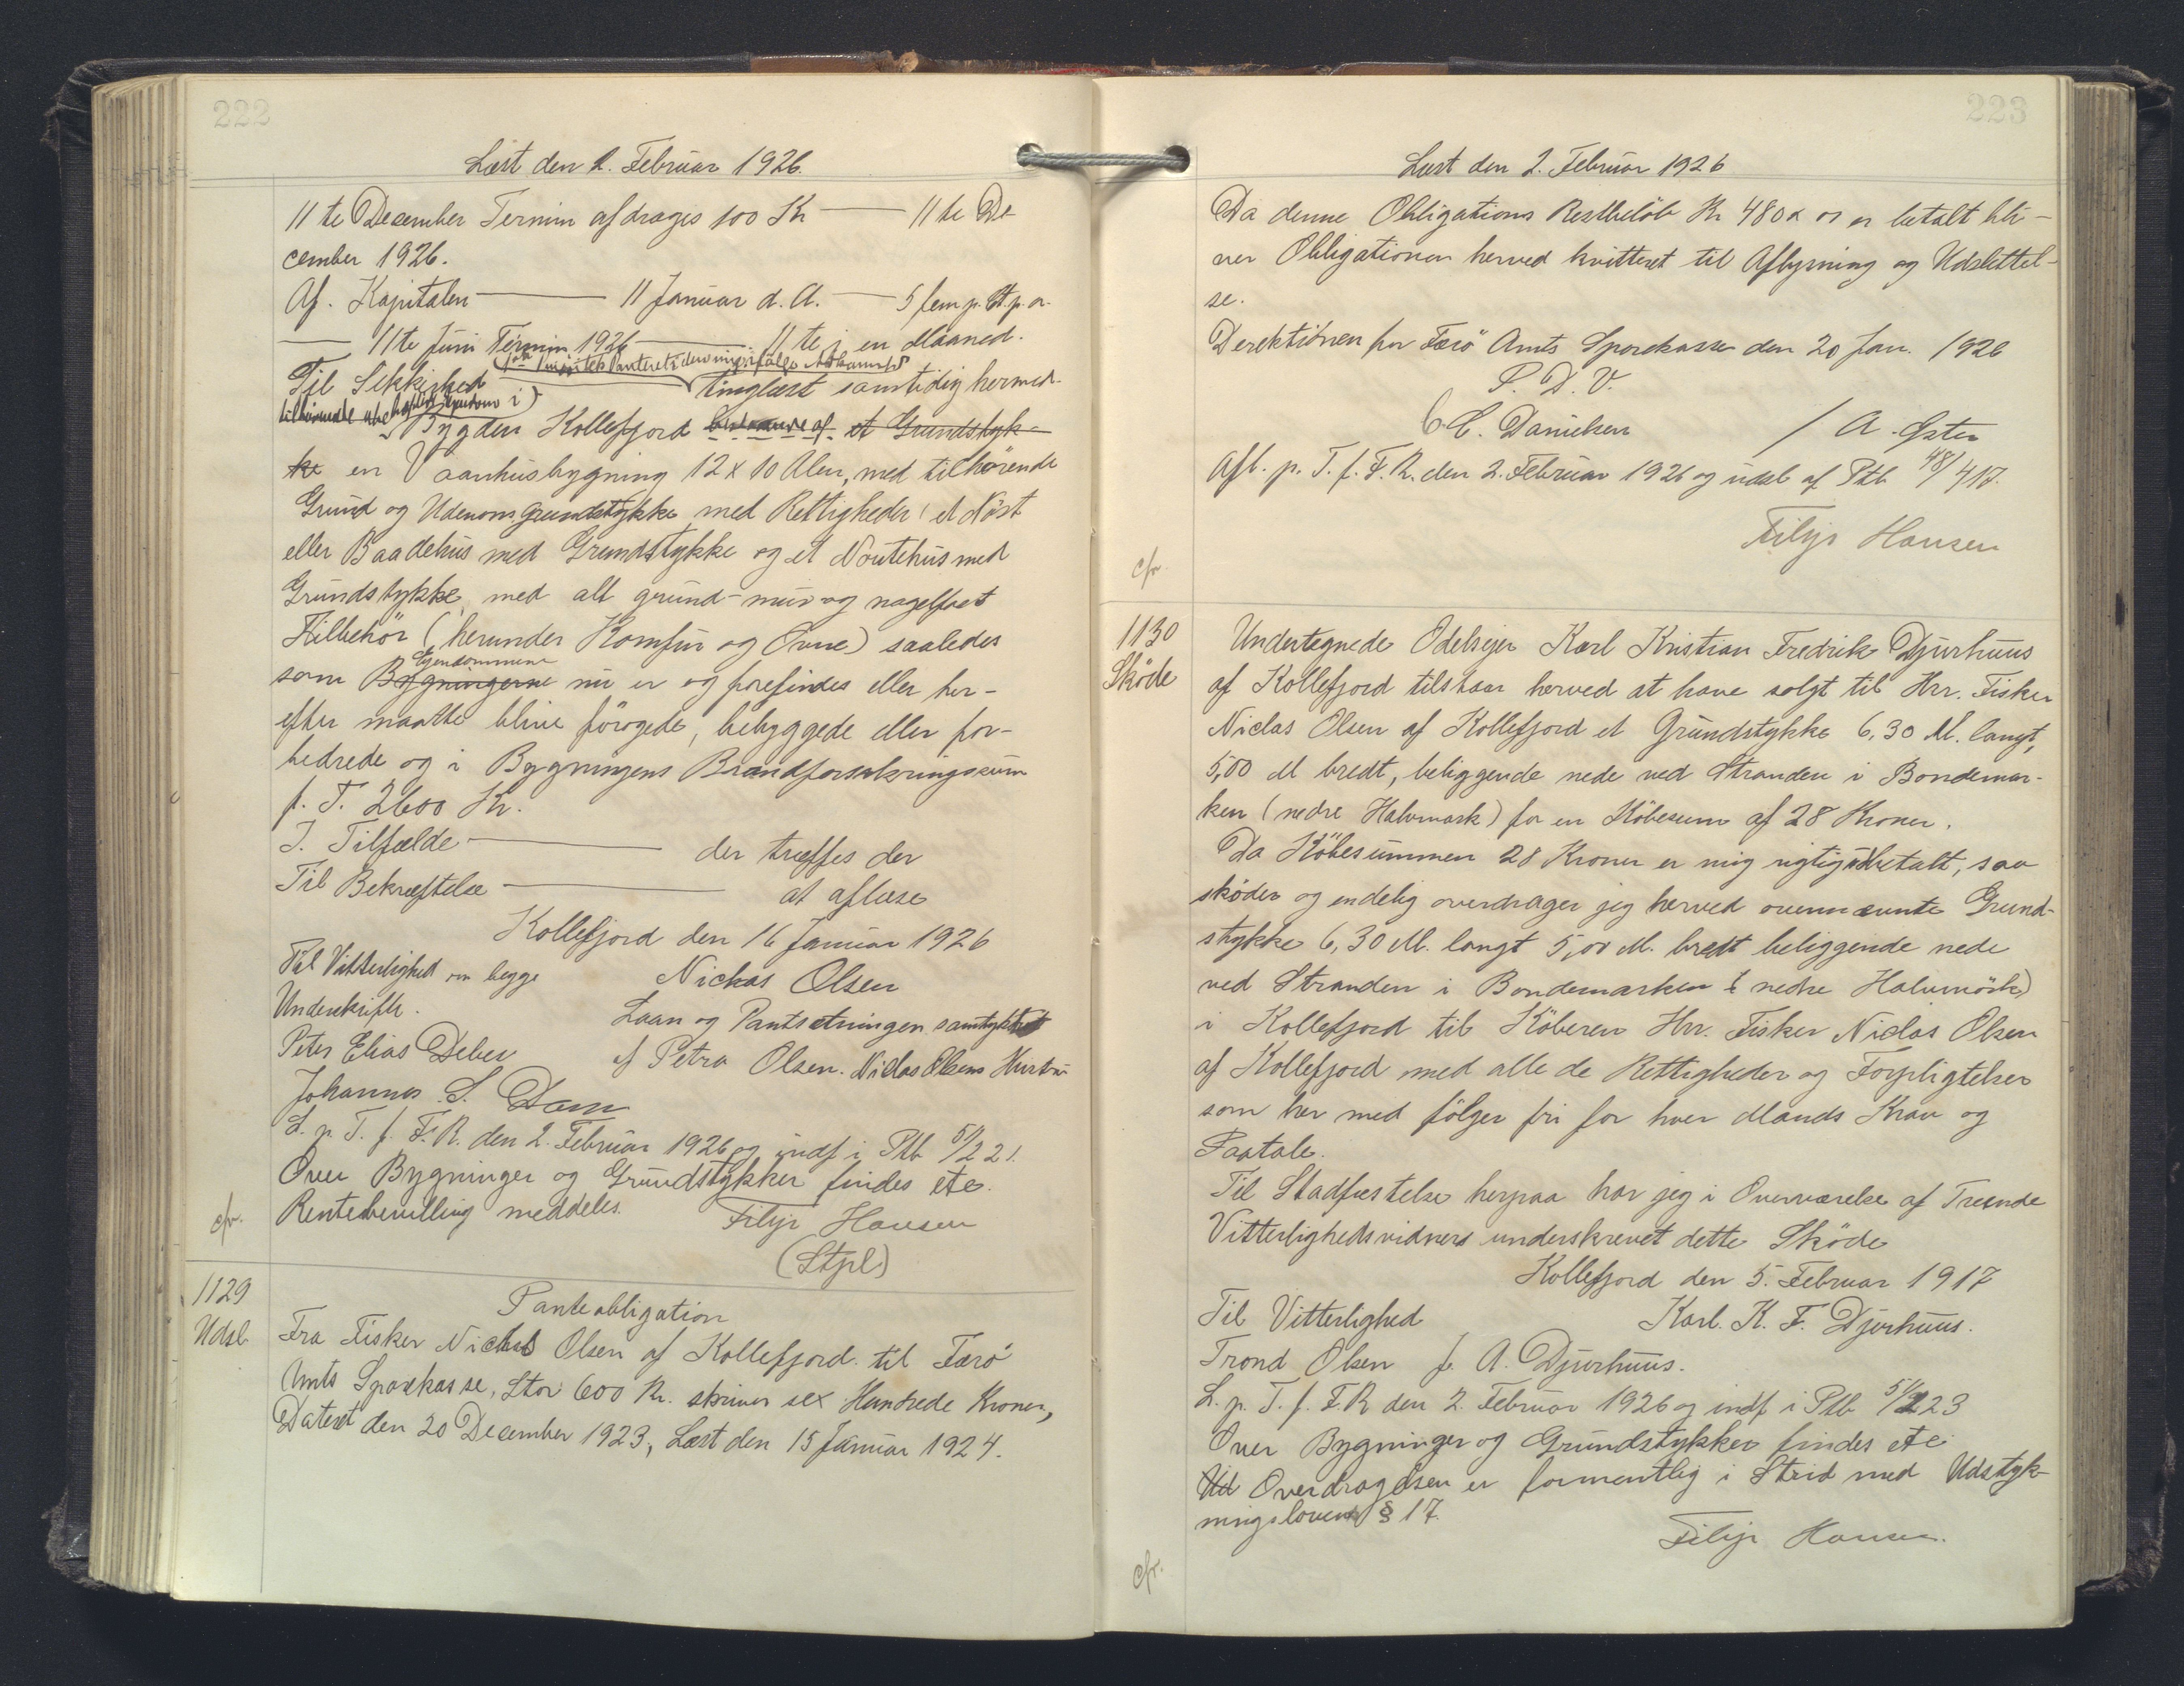 222
Læst den 2. Februar 1926.
11 te December Termin afdrages 100 Kr — 11 te De-
cember 1926.
Af. Kapitalen — 11 Januar d. A. — 5 fem p. Ct. p. a.
— 11te Juni Termin 1926 — 11 te i en Maaned.
Til Sikkerhed tinglæst samtidig hermed.
tilhørende
i Bygden Kollefjord bestaaende af et Grundstyk-
ke en Vaanhusbygning 12 x 10 Alen, med tilhørende
Grund og Udenoms Grundstykke med Rettigheder (et Nöst
eller Baadehus med Grundstykke og et Noutehus med
Grundstykke, med alt grund- mur- og nagelfast
Tilbehör (herunder Komfur og Ovne) saaledes
Ejendommene
som Bygningerne nu er og forefindes eller her-
efter maatte blive forögede, bebyggede eller for-
bedrede og i Bygningens Brandforsikringssum
f. T. 2600 Kr.
I. Tilfælde — der træffes der
Til Bekræftelse — at aflæse
Kollefjord den 16 Januar 1926
Til Vitterlighed om begge
Nicklas Olsen
Underskrifter.
Laan og Pantsætningen samtykket
Peter Elias Debes
af Petra Olsen. Niclas Olsens Hustru
Johannes S. Dam
L. p. T. f. F. R. den 2. Februar 1926 og indf i Ptb 51/221.
Over Bygninger og Grundstykker findes etc.
cfr.
Rentebevilling meddeles.
Filip Hansen
(Stpl)
1129
Udsl
Panteobligation
Fra Fisker Nicklas Olsen af Kollefjord til Færö
Amts Sparekasse, Stor 600 Kr. skriver sex Hundrede Kroner,
Dateret den 20 December 1923, Læst den 15 Januar 1924.
223
Læst den 2. Februar 1926
Da denne Obligations Restbelöb Kr 480 er betalt bli-
ver Obligationen herved kvitteret til Aflysning og Udslettel-
se.
Derektionen for Færö Amts Sparekasse den 20 Jan. 1926
P. D. V.
C. C. Danielsen / A. Öster
Afl. p. T. f. F. R. den 2. Februar 1926 og udsl af Ptb 48/417.
Filip Hansen
cfr.
1130
Sköde
Undertegnede Odelsejer Karl Kristian Fredrik Djurhuus
af Kollefjord tilstaar herved at have solgt til Hrr. Fisker
Niclas Olsen af Kollefjord et Grundstykke 6,30 M. langt,
5,00 M bredt, beliggende nede ved Stranden i Bondemar-
ken (nedre Halvmark) for en Köbesum af 28 Kroner.
Da Köbesummen 28 Kroner er mig rigtig udbetalt, saa
sköder og endelig overdrager jeg herved ovennævnte Grund-
stykke 6,30 M. langt 5,00 M. bredt beliggende nede
ved Stranden i Bondemarken ( nedre Halvmörk)
i Kollefjord til Köberen Hrr. Fisker Niclas Olsen
af Kollefjord med alle de Rettigheder og Forpligtelser
som her med fölger fri for hver Mands Krav og
Paatale.
Til Stadfæstelse herpaa har jeg i Overværelse af Tvende
Vitterlighedsvidner underskrevet dette Sköde
Kollefjord den 5. Februar 1917
Til Vitterlighed
Karl. K. F. Djurhuus.
Trond Olsen J. A. Djurhuus.
L. p. T. f. F. R den 2. Februar 1926 og indf i Ptb 51/223
Over Bygninger og Grundstykker findes etc
Ud Overdragelsen er formentlig i Strid med Udstyk-
ningslovens § 17.
Filip Hansen.
cfr.